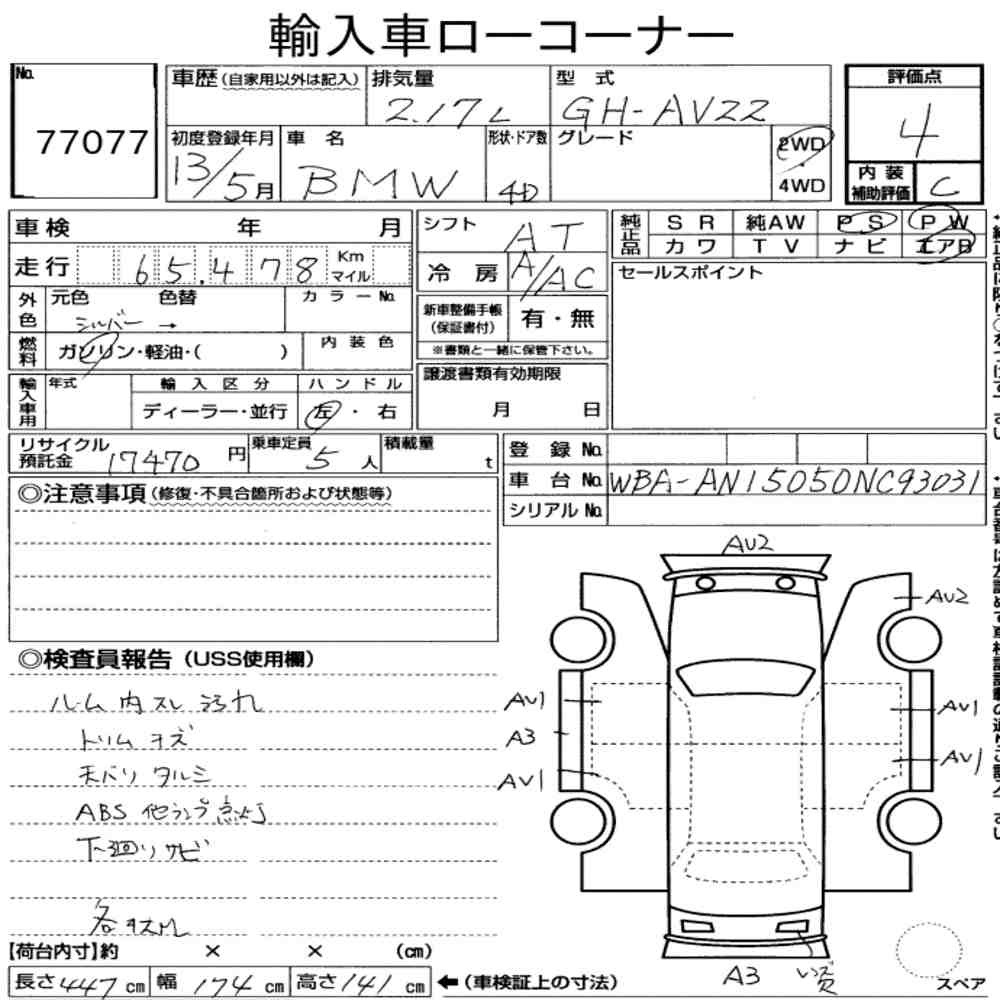 輸入車ローコーナー
No. 77077
車歴(自家用以外は記入) 排気量 2.17L 型式 GH-AV22 評価点 4
初度登録年月 13/5月 車名 BMW 形状・ドア数 4D グレード 2WD・4WD 内装補助評価 C
車検 年 月 シフト AT 純正品 SR 純AW PS PW
走行 65.478 Km マイル 冷房 A/AC カワ TV ナビ エアB
外色 元色 シルバー → 色替 カラーNo. 新車整備手帳(保証書付) 有・無 セールスポイント
※書類と一緒に保管下さい。
燃料 ガソリン・軽油・( ) 内装色
輸入車用 年式 輸入区分 ハンドル 譲渡書類有効期限
ディーラー・並行 左・右 月 日
リサイクル預託金 17470円 乗車定員 5人 積載量 t 登録No.
車台No. WBA-AN15050NC93031
シリアルNo.
◎注意事項(修復・不具合箇所および状態等)
◎検査員報告(USS使用欄)
ルーム内スレ 汚れ
トリムキズ
天バリ タルミ
ABS 他ランプ点灯
下廻りサビ
各キズU
AU2
AU2
AU1 AU1
A3
AU1 AU1
A3
スペア
【荷台内寸】約 × × (cm)
長さ447cm 幅174cm 高さ141cm ←(車検証上の寸法)